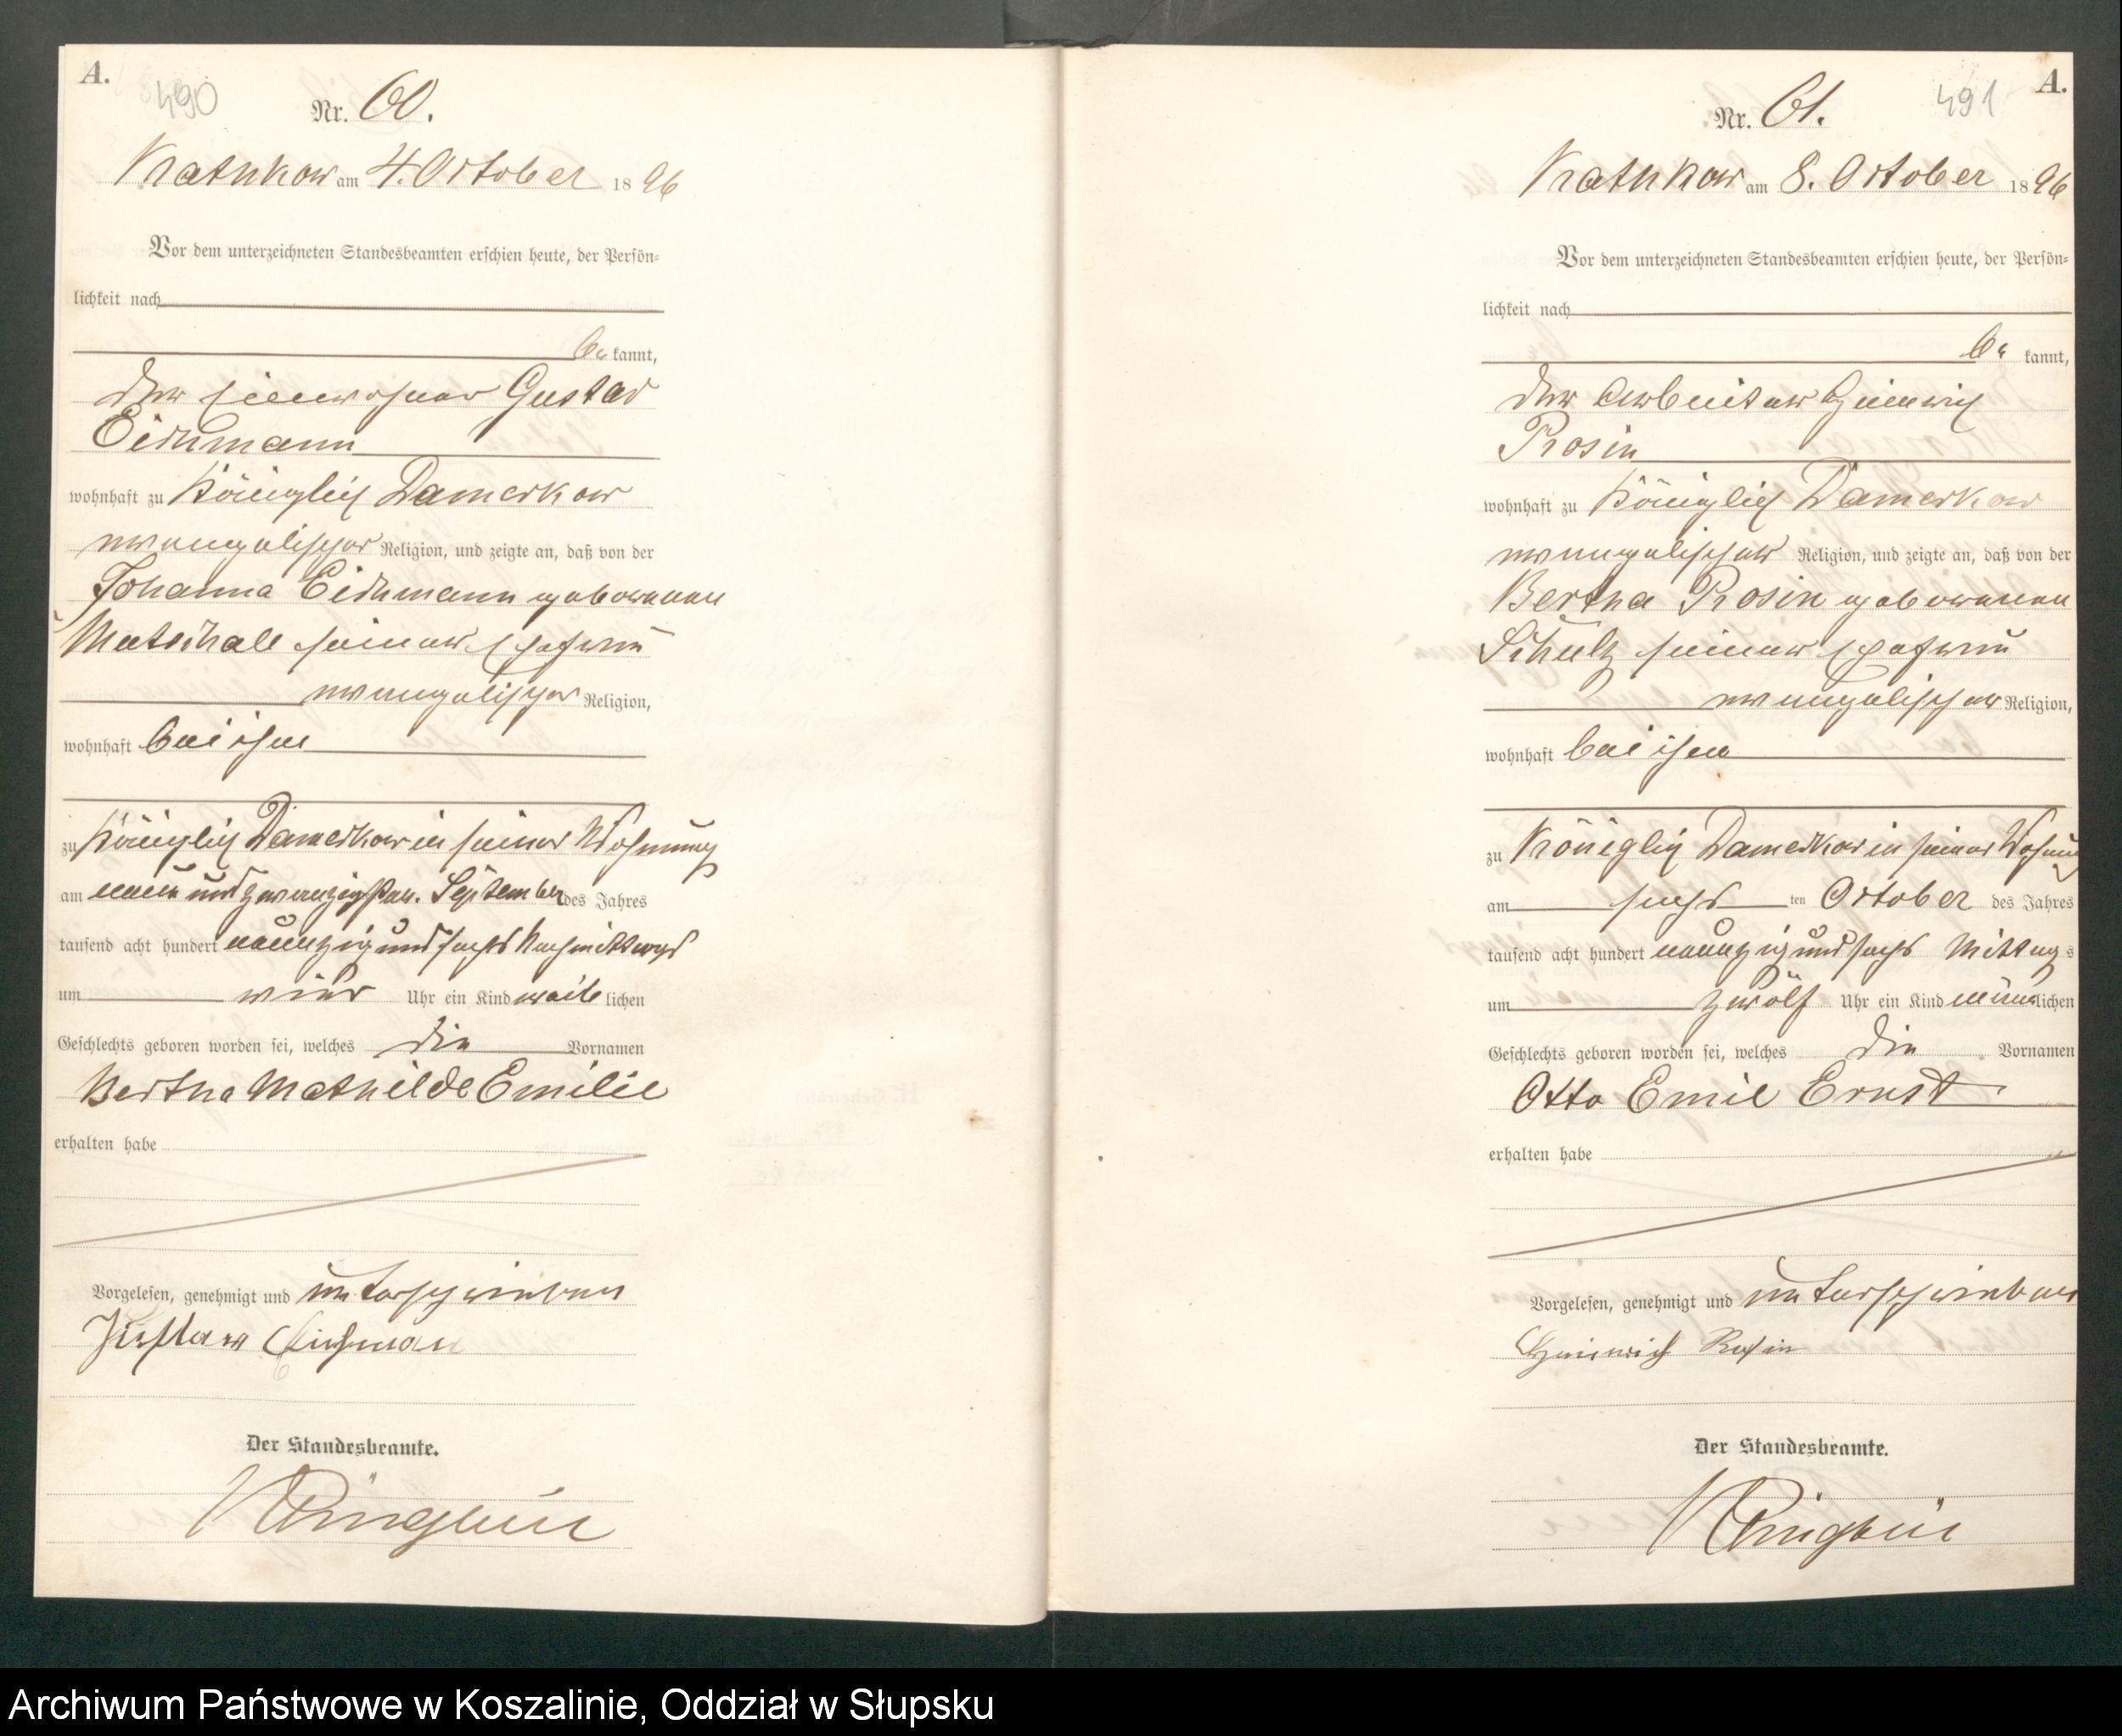 A.
490
Nr. 60.
Rathkow am 4. October 1896
Vor dem unterzeichneten Standesbeamten erschien heute, der Persön-
lichkeit nach
be kannt,
der Einwohner Gustav
Eichmann
wohnhaft zu Königlich Damerkow
evangelischer Religion, und zeigte an, daß von der
Johanna Eichmann geborenen
Mutschall seiner Ehefrau
evangelischer Religion,
wohnhaft bei ihm
zu Königlich Damerkow in seiner Wohnung
am neun und zwanzigsten September des Jahres
tausend acht hundert neunzig und sechs Nachmittags
um vier Uhr ein Kind weiblichen
Geschlechts geboren worden sei, welches die Vornamen
Bertha Mathilde Emilie
erhalten habe
Vorgelesen, genehmigt und unterschrieben
Gustav Eichman
Der Standesbeamte.
A.
491
Nr. 61.
Rathkow am 8. October 1896
Vor dem unterzeichneten Standesbeamten erschien heute, der Persön-
lichkeit nach
be kannt,
der Arbeiter Heinrich
Rosin
wohnhaft zu Königlich Damerkow
evangelischer Religion, und zeigte an, daß von der
Bertha Rosin geborenen
Schultz seiner Ehefrau
evangelischer Religion,
wohnhaft bei ihm
zu Königlich Damerkow in seiner Wohnung
am sechs ten October des Jahres
tausend acht hundert neunzig und sechs Mittags
um zwölf Uhr ein Kind männlichen
Geschlechts geboren worden sei, welches die Vornamen
Otto Emil Ernst
erhalten habe
Vorgelesen, genehmigt und unterschrieben
Heinrich Rosin
Der Standesbeamte.
Archiwum Państwowe w Koszalinie, Oddział w Słupsku